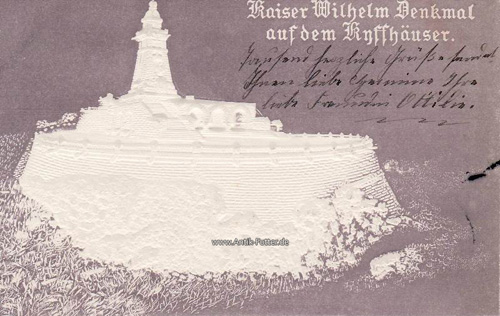 Kaiser Wilhelm Denkmal
auf dem Kyffhäuser.
Tausend herzliche Grüße sendet
Ihnen liebe Ihre
liebe Freundin Ottilie.
www.Antik-Potter.de